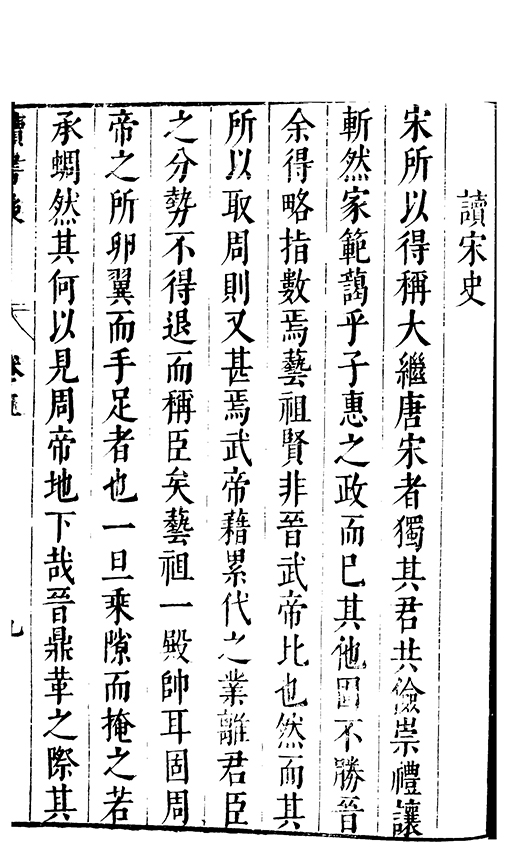 讀宋史
宋所以得稱大繼唐宋者獨其君共儉崇禮讓
斬然家範藹乎子惠之政而已其他固不勝晉
余得略指數焉藝祖賢非晉武帝比也然而其
所以取周則又甚焉武帝藉累代之業離君臣
之分勢不得退而稱臣矣藝祖一殿帥耳固周
帝之所卵翼而手足者也一旦乘隙而掩之若
承蜩然其何以見周帝地下哉晉鼎革之際其
讀書後
卷五
九